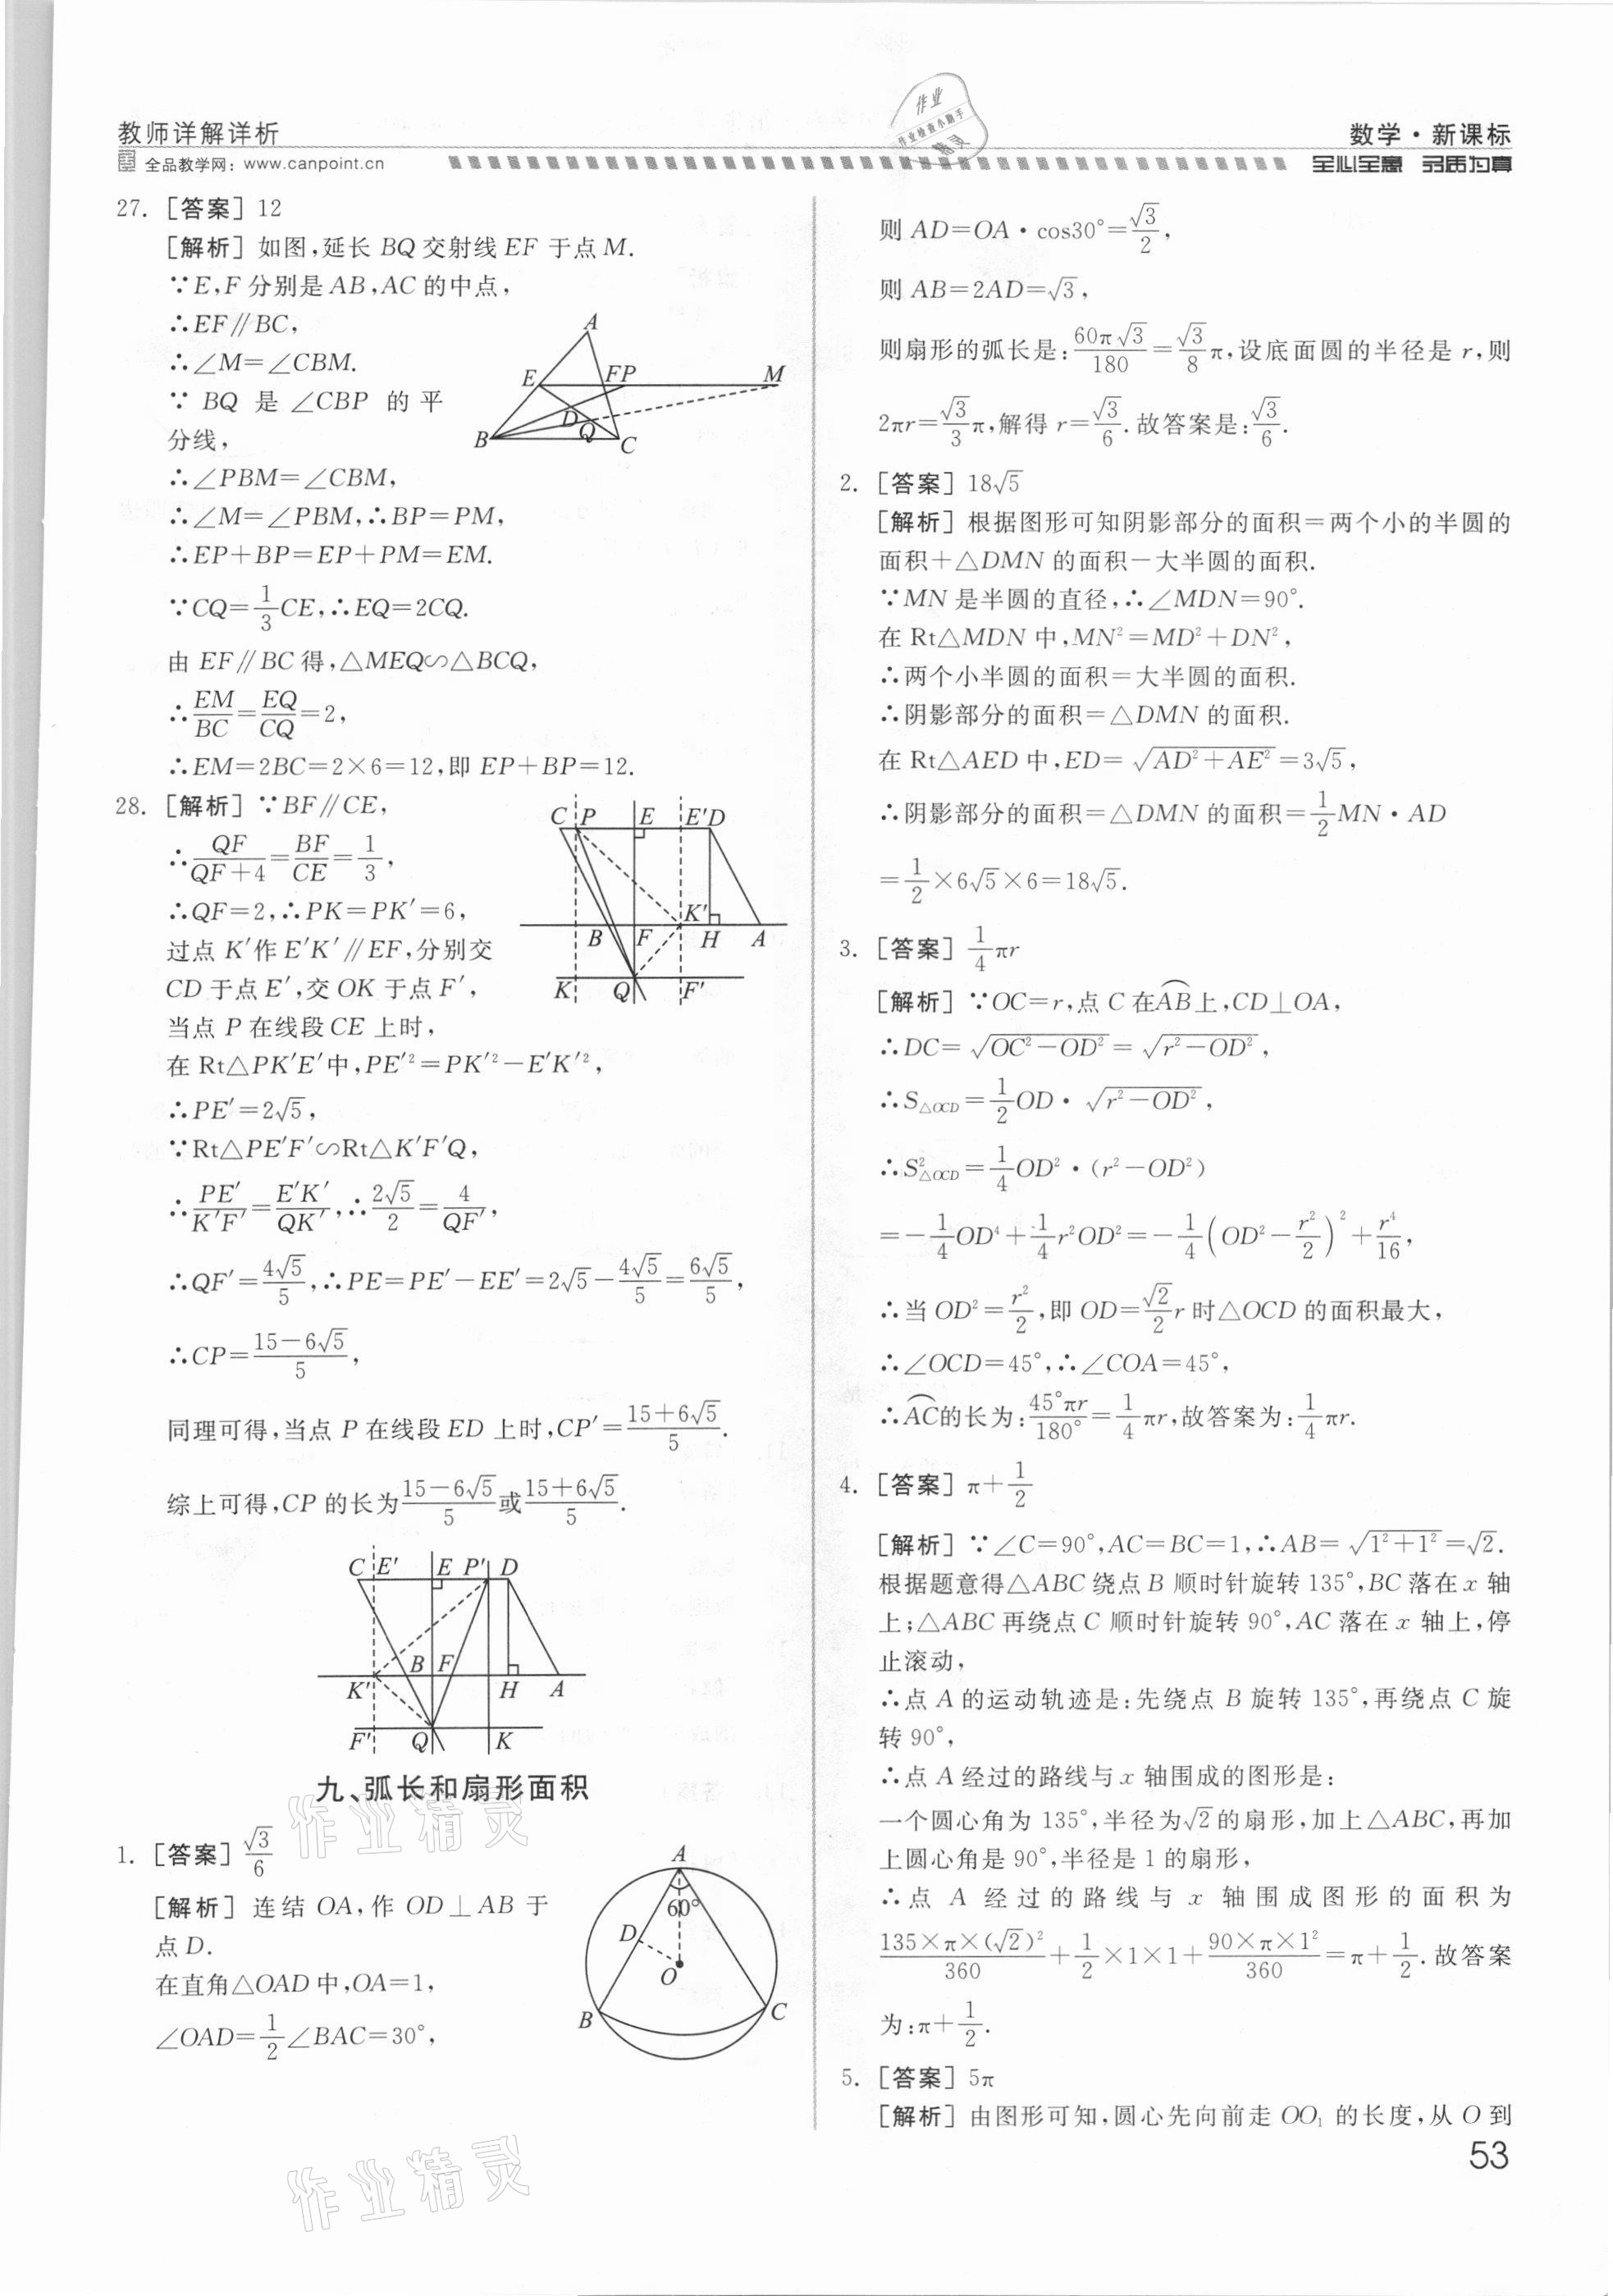 教师详解详析
全品教学网：www.canpoint.cn
作业
作业检查小助手
精灵
数学·新课标
全心全意 品质为真
27. [答案] 12
[解析] 如图,延长 BQ 交射线 EF 于点 M.
∵E,F 分别是 AB,AC 的中点,
∴EF∥BC,
∴∠M=∠CBM.
∵ BQ 是 ∠CBP 的平
分线,
∴∠PBM=∠CBM,
∴∠M=∠PBM,∴BP=PM,
∴EP+BP=EP+PM=EM.
∵CQ=1/3CE,∴EQ=2CQ.
由 EF∥BC 得,△MEQ∽△BCQ,
∴EM/BC=EQ/CQ=2,
∴EM=2BC=2×6=12,即 EP+BP=12.
A
E FP M
D
B Q C
28. [解析] ∵BF∥CE,
∴QF/(QF+4)=BF/CE=1/3,
∴QF=2,∴PK=PK′=6,
过点 K′作 E′K′∥EF,分别交
CD 于点 E′,交 OK 于点 F′,
当点 P 在线段 CE 上时,
在 Rt△PK′E′中,PE′²=PK′²-E′K′²,
∴PE′=2√5,
∵Rt△PE′F′∽Rt△K′F′Q,
∴PE′/K′F′=E′K′/QK′,∴2√5/2=4/QF′,
∴QF′=4√5/5,∴PE=PE′-EE′=2√5-4√5/5=6√5/5,
∴CP=(15-6√5)/5,
同理可得,当点 P 在线段 ED 上时,CP′=(15+6√5)/5.
综上可得,CP 的长为(15-6√5)/5或(15+6√5)/5.
C P E E′ D
K′
B F H A
K Q F′
C E′ E P′ D
B F
K′ H A
F′ Q K
九、弧长和扇形面积
1. [答案] √3/6
[解析] 连结 OA,作 OD⊥AB 于
点 D.
在直角△OAD 中,OA=1,
∠OAD=1/2∠BAC=30°,
A
60°
D
O
B C
则 AD=OA·cos30°=√3/2,
则 AB=2AD=√3,
则扇形的弧长是:60π√3/180=√3/8π,设底面圆的半径是 r,则
2πr=√3/3π,解得 r=√3/6.故答案是:√3/6.
2. [答案] 18√5
[解析] 根据图形可知阴影部分的面积=两个小的半圆的
面积+△DMN 的面积-大半圆的面积.
∵MN 是半圆的直径,∴∠MDN=90°.
在 Rt△MDN 中,MN²=MD²+DN²,
∴两个小半圆的面积=大半圆的面积.
∴阴影部分的面积=△DMN 的面积.
在 Rt△AED 中,ED=√(AD²+AE²)=3√5,
∴阴影部分的面积=△DMN 的面积=1/2MN·AD
=1/2×6√5×6=18√5.
3. [答案] 1/4πr
[解析] ∵OC=r,点 C 在⌒AB上,CD⊥OA,
∴DC=√(OC²-OD²)=√(r²-OD²),
∴S△OCD=1/2OD·√(r²-OD²),
∴S²△OCD=1/4OD²·(r²-OD²)
=-1/4OD⁴+1/4r²OD²=-1/4(OD²-r²/2)²+r⁴/16,
∴当 OD²=r²/2,即 OD=√2/2r 时△OCD 的面积最大,
∴∠OCD=45°,∴∠COA=45°,
∴⌒AC的长为:45°πr/180°=1/4πr,故答案为:1/4πr.
4. [答案] π+1/2
[解析] ∵∠C=90°,AC=BC=1,∴AB=√(1²+1²)=√2.
根据题意得△ABC 绕点 B 顺时针旋转 135°,BC 落在 x 轴
上;△ABC 再绕点 C 顺时针旋转 90°,AC 落在 x 轴上,停
止滚动,
∴点 A 的运动轨迹是:先绕点 B 旋转 135°,再绕点 C 旋
转 90°,
∴点 A 经过的路线与 x 轴围成的图形是:
一个圆心角为 135°,半径为√2的扇形,加上△ABC,再加
上圆心角是 90°,半径是 1 的扇形,
∴点 A 经过的路线与 x 轴围成图形的面积为
135×π×(√2)²/360+1/2×1×1+90×π×1²/360=π+1/2.故答案
为:π+1/2.
5. [答案] 5π
[解析] 由图形可知,圆心先向前走 OO₁ 的长度,从 O 到
53
作业精灵
作业精灵